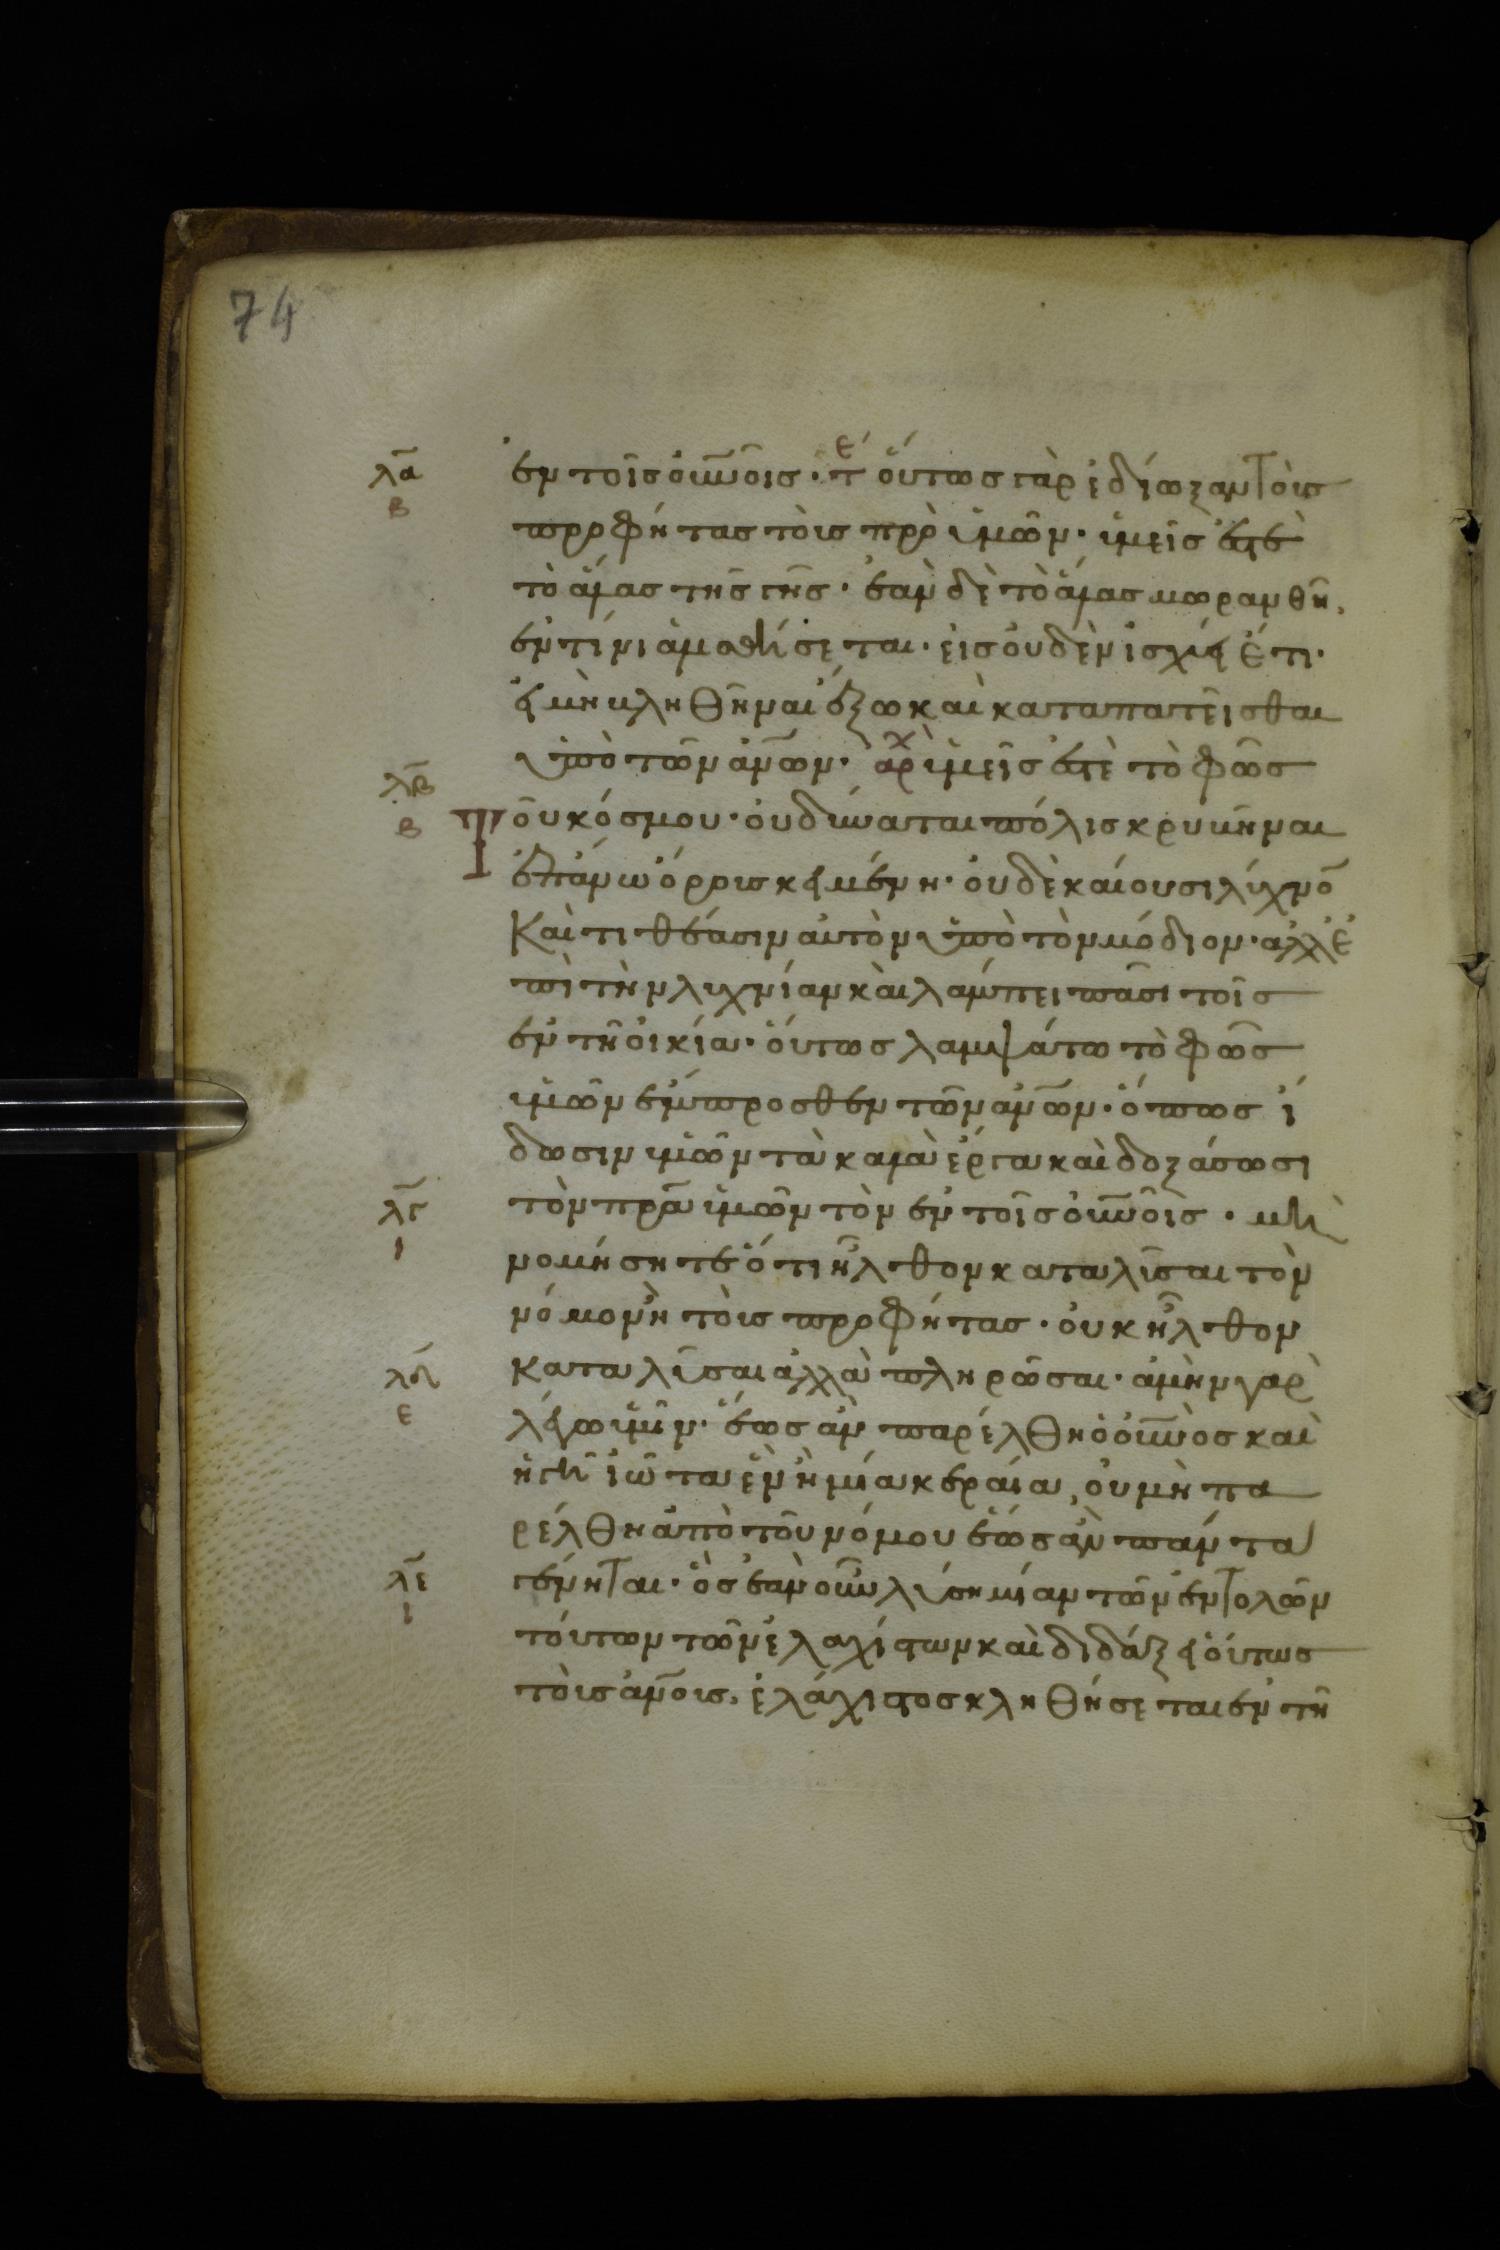 74
λα ἐν τοῖς οὐνοῖς· τε οὕτως γὰρ ἐδίωξαν τοὺς
β προφήτας τοὺς πρὸ ὑμῶν· ὑμεῖς ἐστὲ
τὸ ἅλας τῆς γῆς· ἐὰν δὲ τὸ ἅλας μωρανθῆ,
ἐν τίνι ἁλισθήσεται· εἰς οὐδὲν ἰσχύει ἔτι·
εἰ μὴ βληθῆναι ἔξω καὶ καταπατεῖσθαι
ὑπὸ τῶν ἀνων· ἀρχ ὑμεῖς ἐστὲ τὸ φῶς
λβ
β Τοῦ κόσμου· οὐ δύναται πόλις κρυβῆναι
ἐπάνω ὄρους κειμένη· οὐδὲ καίουσι λύχνο
Καὶ τιθέασιν αὐτὸν ὑπὸ τὸν μόδιον· ἀλλ' ἐ
πὶ τὴν λυχνίαν καὶ λάμπει πᾶσι τοῖς
ἐν τῆ οἰκία· οὕτως λαμψάτω τὸ φῶς
ὑμῶν ἔμπροσθεν τῶν ἀνων· ὅπως ἴ
δωσιν ὑμῶν τὰ καλὰ ἔργα καὶ δοξάσωσι
λγ τὸν πρα ὑμῶν τὸν ἐν τοῖς οὐνοῖς· μὴ
ι νομήσητε ὅτι ἦλθον καταλῦσαι τὸν
νόμον ἢ τοὺς προφήτας· οὐκ ἦλθον
λδ καταλῦσαι ἀλλὰ πληρῶσαι· ἀμὴν γὰρ
ε λέγω ὑμῖν· ἕως ἂν παρέλθη ὁ οὐνὸς καὶ
ἡ γῆ ἰῶτα ἓν ἢ μία κεραία, οὐ μὴ πα
ρέλθη ἀπὸ τοῦ νόμου ἕως ἂν πάντα
λε γένηται· ὃς ἐὰν οὖν λύση μίαν τῶν ἐντολῶν
ι τούτων τῶν ἐλαχίστων καὶ διδάξει οὕτως
τοὺς ἀνους, ἐλάχιστος κληθήσεται ἐν τῆ